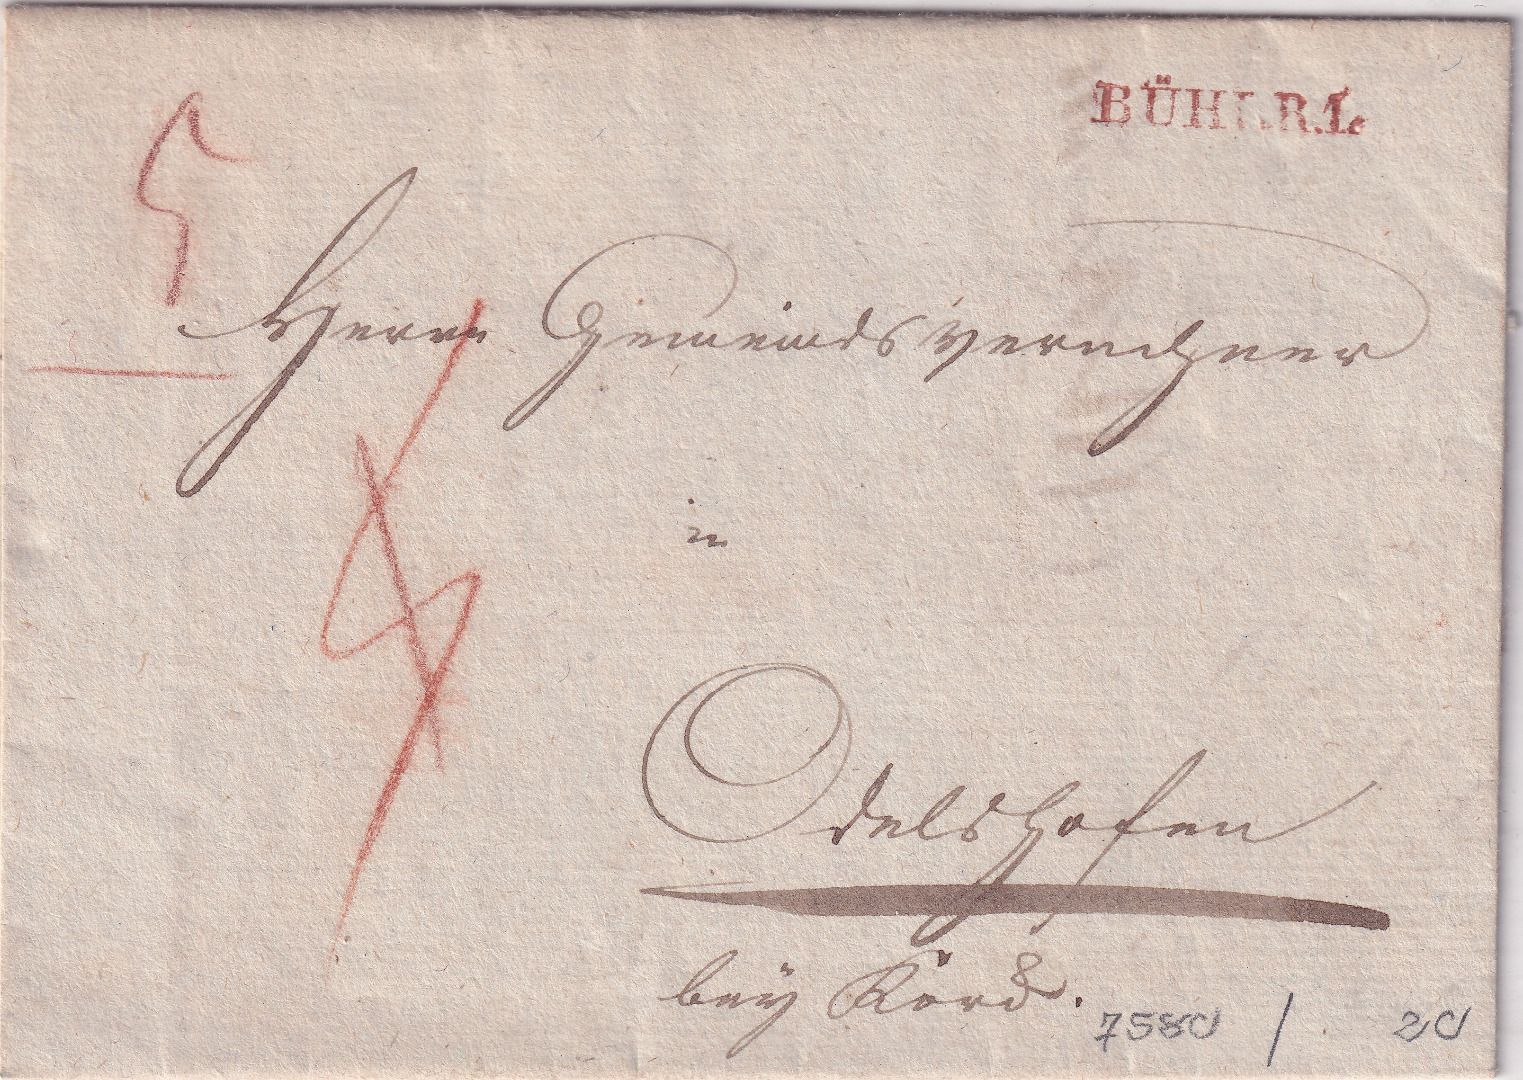 BÜHL.R.1.
Herrn Gemeindsverrechner
in
Odelshofen
bey Kork.
7580 / 20